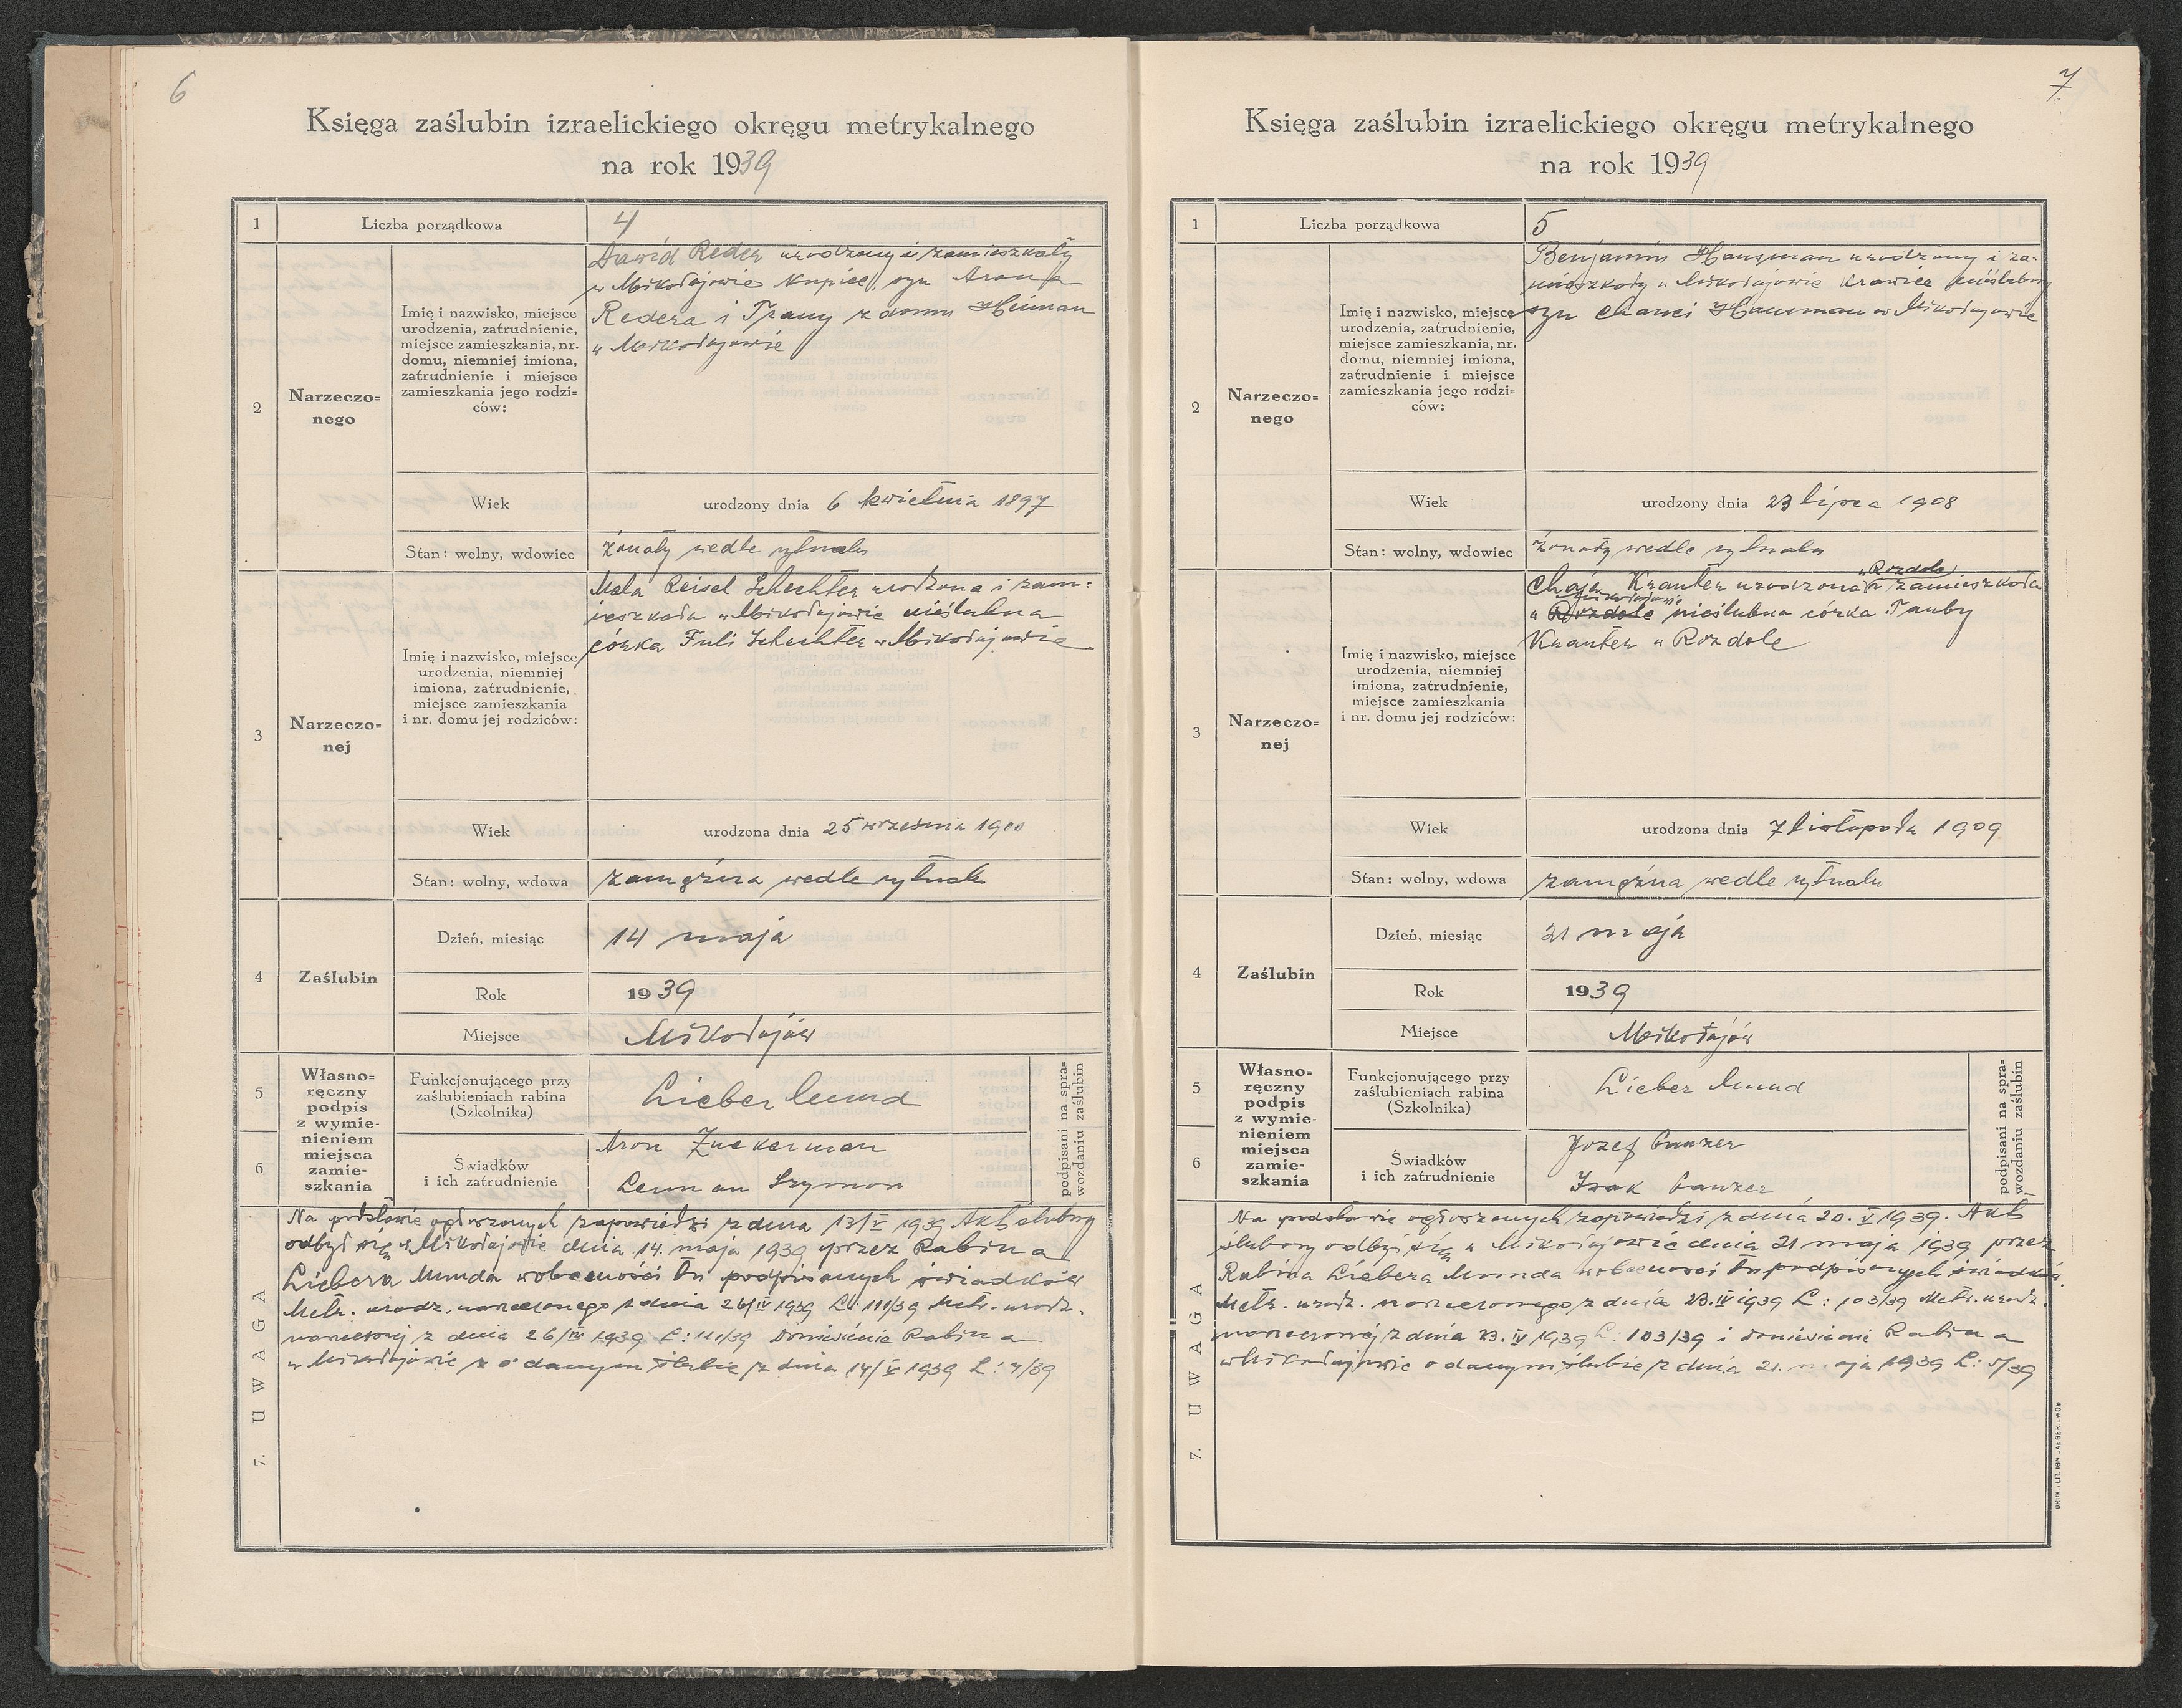 6
Księga zaślubin izraelickiego okręgu metrykalnego
na rok 1939
1
Liczba porządkowa
4
2
Narzeczo=
nego
Imię i nazwisko, miejsce
urodzenia, zatrudnienie,
miejsce zamieszkania, nr.
domu, niemniej imiona,
zatrudnienie i miejsce
zamieszkania jego rodzi=
ców:
Dawid Reder urodzony i zamieszkały
w Mikołajowie kupiec, syn Arona
Redera i Frany z domu Heiman
w Mikołajowie
Wiek
urodzony dnia 6 kwietnia 1897
Stan: wolny, wdowiec
żonaty wedle rytuału
3
Narzeczo=
nej
Imię i nazwisko, miejsce
urodzenia, niemniej
imiona, zatrudnienie,
miejsce zamieszkania
i nr. domu jej rodziców:
Mala Reisel Schechter urodzona i zam=
ieszkała w Mikołajowie nieślubna
córka Juli Schechter w Mikołajowie
Wiek
urodzona dnia 25 września 1900
Stan: wolny, wdowa
zamężna wedle rytuału
4
Zaślubin
Dzień, miesiąc
14 maja
Rok
1939
Miejsce
Mikołajów
5
6
Własno=
ręczny
podpis
z wymie-
nieniem
miejsca
zamie-
szkania
Funkcjonującego przy
zaślubieniach rabina
(Szkolnika)
Lieber Mund
Świadków
i ich zatrudnienie
Aron Zuckerman
Lerman Szymon
podpisani na spra=
wozdaniu zaślubin
7. UWAGA
Na podstawie ogłoszonych zapowiedzi z dnia 13/V 1939 Akt ślubny
odbył się w Mikołajowie dnia 14. maja 1939 przez Rabina
Liebera Munda wobecności tu podpisanych świadków
Metr. urodz. narzeczonego z dnia 26/IV 1939 L: 111/39 Metr. urodz.
narzeczonej z dnia 26/IV 1939 L: 111/39 Doniesienie Rabina
w Mikołajowie z o danym ślubie z dnia 14/V 1939 L: 4/39
7
Księga zaślubin izraelickiego okręgu metrykalnego
na rok 1939
1
Liczba porządkowa
5
2
Narzeczo=
nego
Imię i nazwisko, miejsce
urodzenia, zatrudnienie,
miejsce zamieszkania, nr.
domu, niemniej imiona,
zatrudnienie i miejsce
zamieszkania jego rodzi=
ców:
Benjamin Hausman urodzony i za-
mieszkały w Mikołajowie krawiec nieślubny
syn Chanci Hausman w Mikołajowie
Wiek
urodzony dnia 23 lipca 1908
Stan: wolny, wdowiec
żonaty wedle rytuału
3
Narzeczo=
nej
Imię i nazwisko, miejsce
urodzenia, niemniej
imiona, zatrudnienie,
miejsce zamieszkania
i nr. domu jej rodziców:
w Rozdole
Chaja Kranter urodzona i zamieszkała
Mikołajowie
w Rozdole nieślubna córka Tauby
Kranter w Rozdole
Wiek
urodzona dnia 7 listopada 1909
Stan: wolny, wdowa
zamężna wedle rytuału
4
Zaślubin
Dzień, miesiąc
21 maja
Rok
1939
Miejsce
Mikołajów
5
6
Własno=
ręczny
podpis
z wymie-
nieniem
miejsca
zamie-
szkania
Funkcjonującego przy
zaślubieniach rabina
(Szkolnika)
Lieber Mund
Świadków
i ich zatrudnienie
Józef Ganzer
Izak Ganzer
podpisani na spra=
wozdaniu zaślubin
7. UWAGA
Na podstawie ogłoszonych zapowiedzi z dnia 20. V 1939. Akt
ślubny odbył się w Mikołajowie dnia 21 maja 1939 przez
Rabina Liebera Munda wobecności tu podpisanych świadków.
Metr. urodz. narzeczonego z dnia 23. IV 1939 L: 103/39 Metr. urodz.
narzeczonej z dnia 23. IV 1939 L: 103/39 i doniesienie Rabina
w Mikołajowie o danym ślubie z dnia 21. maja 1939 L: 5/39